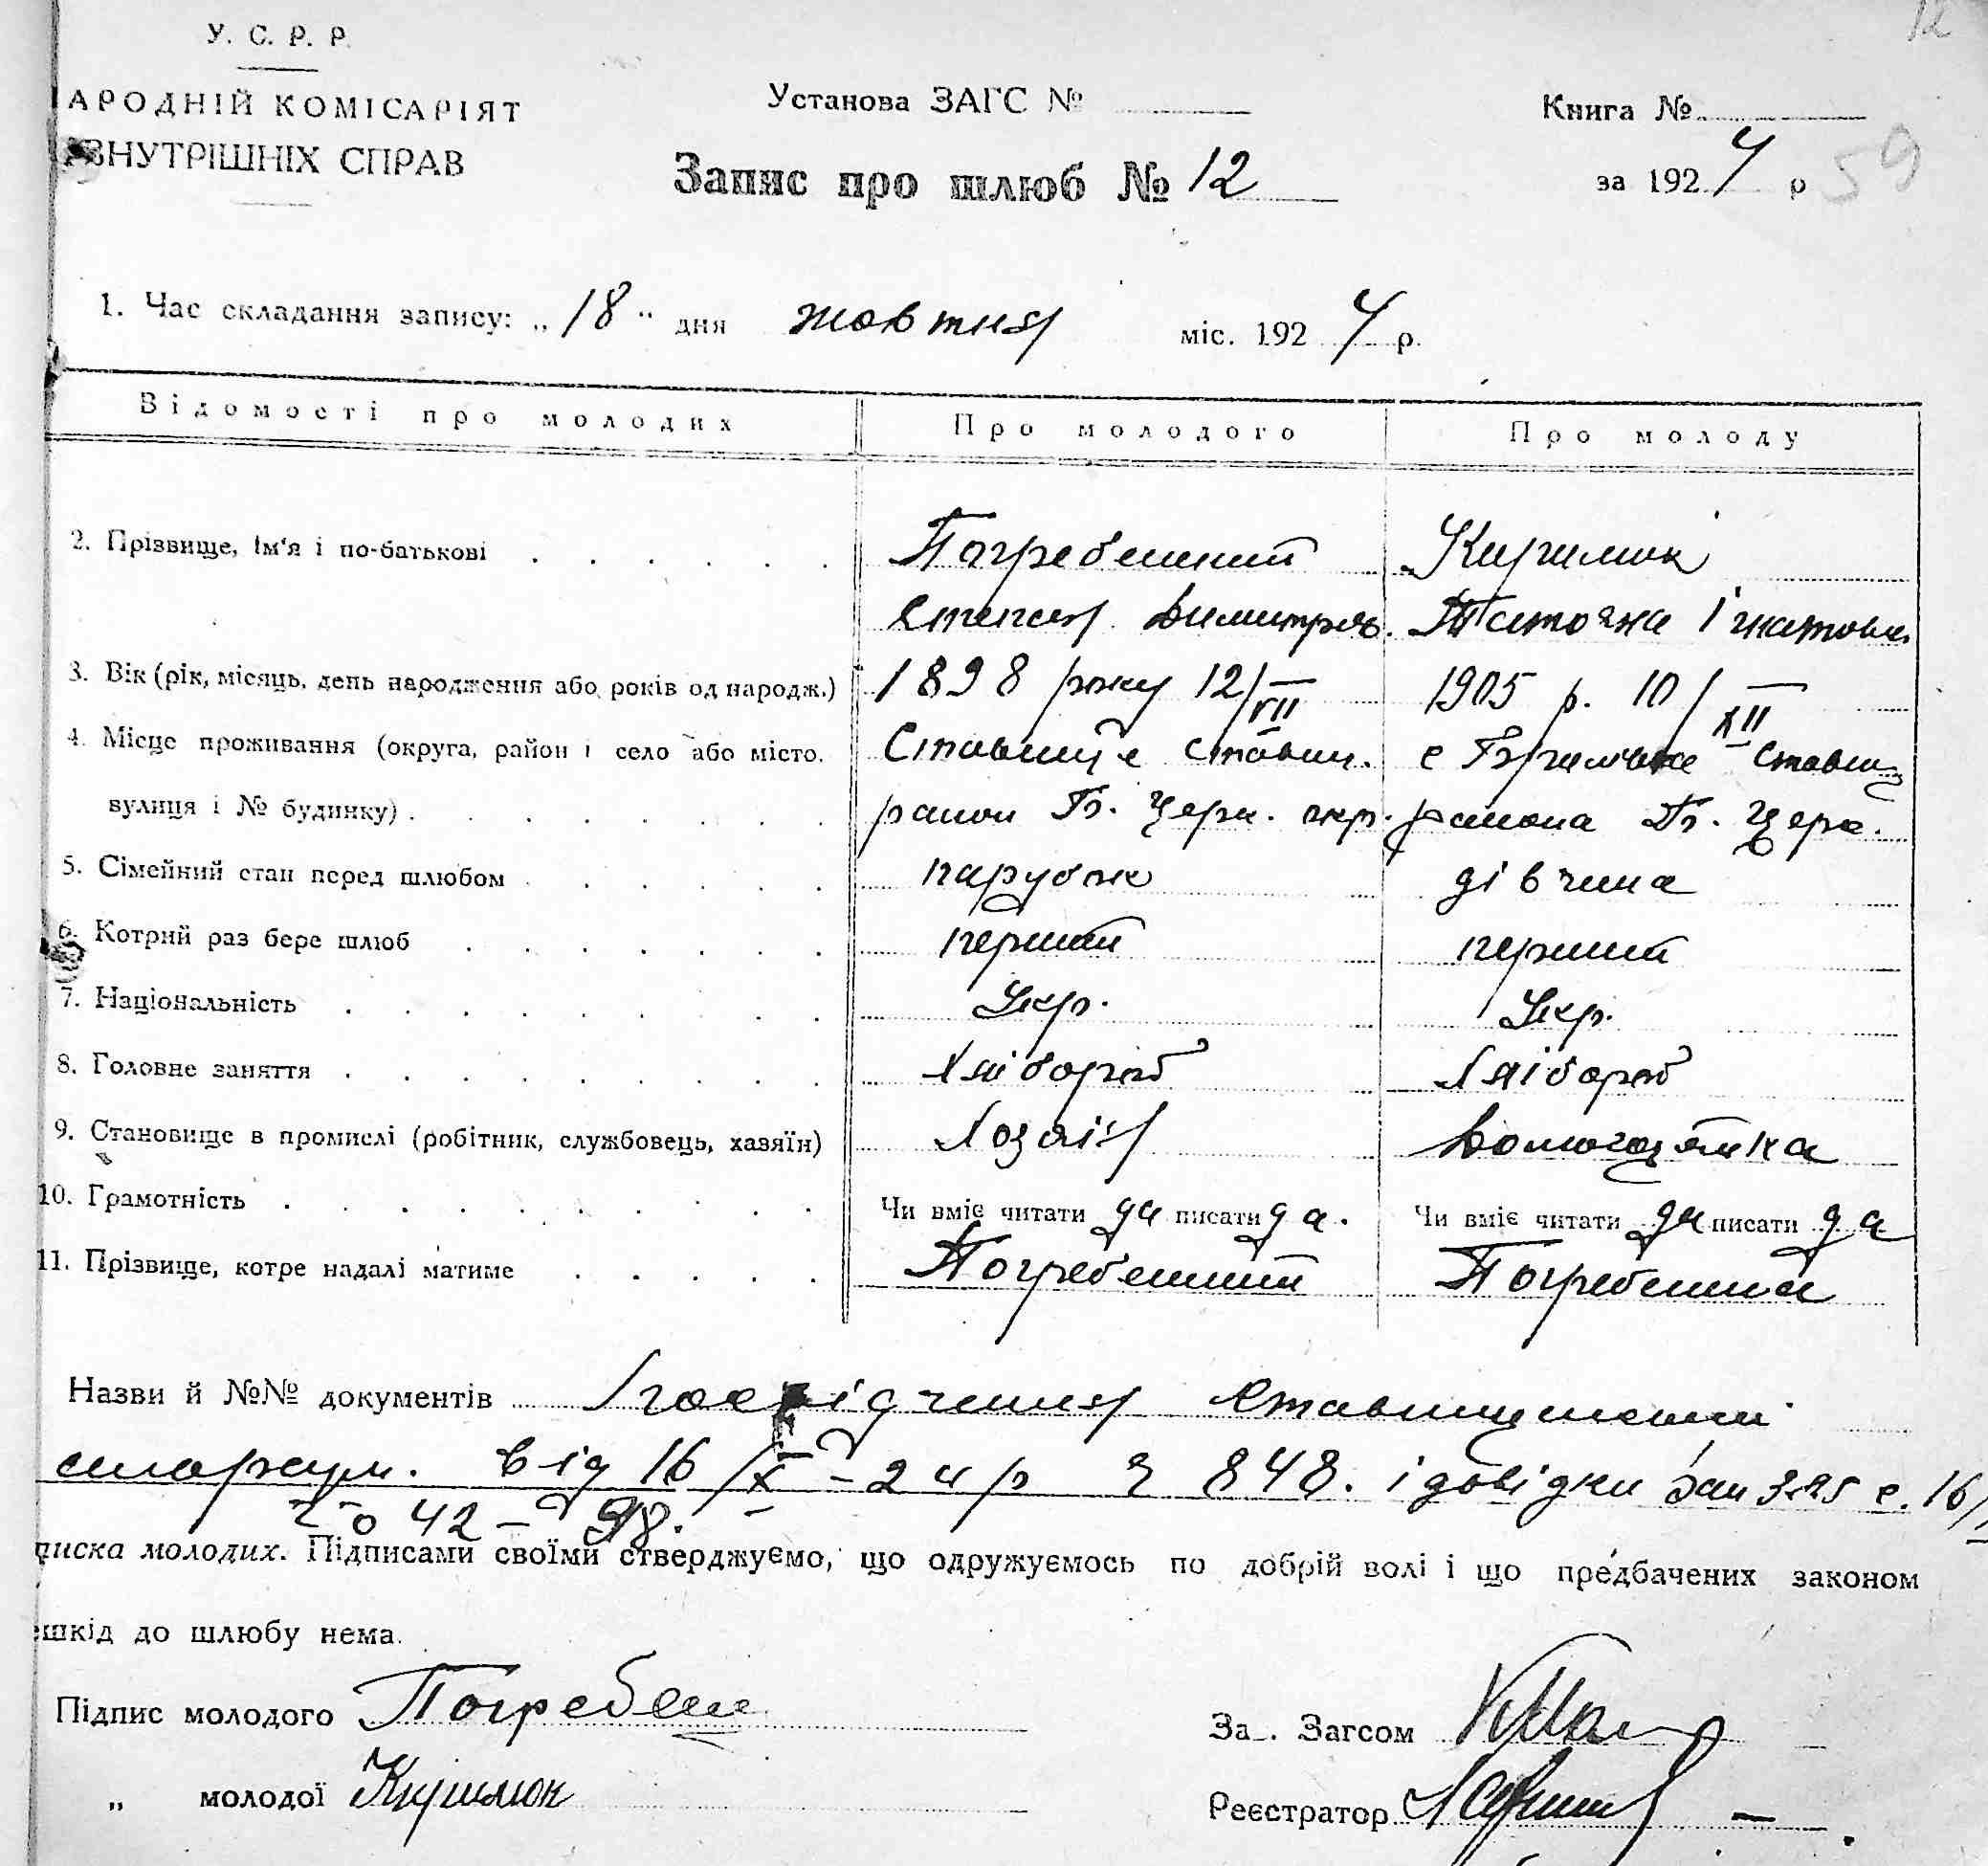 12
У. С. Р. Р.
АРОДНІЙ КОМІСАРІЯТ
ВНУТРІШНІХ СПРАВ
Установа ЗАГС №
Книга №
Запис про шлюб № 12
за 1924 р
59
1. Час складання запису: „18" дня жовтня міс. 1924 р.
Відомості про молодих Про молодого Про молоду
2. Прізвище, ім'я і по-батькові Погребенний Кирилюк
Степан Димитров. Ігнатовна
3. Вік (рік, місяць, день народження або років од народж.) 1898 року 12/VII 1905 р. 10/XII
4. Місце проживання (округа, район і село або місто, Ставище Ставищ. с Ставищ
вулиця і № будинку) район Б. Церк. окр. района Б. Церк.
5. Сімейний стан перед шлюбом парубок дівчина
6. Котрий раз бере шлюб перший перший
7. Національність Укр. Укр.
8. Головне заняття Хлібороб Хлібороб
9. Становище в промислі (робітник, службовець, хазяїн) Хозяїн Домогозяйка
10. Грамотність Чи вміє читати да писати да. Чи вміє читати да писати да
11. Прізвище, котре надалі матиме Погребенний Погребенна
Назви й №№ документів Посвідчення Ставищенської
від 16/X – 24 р 848. і довідки 16/
42 – 98.
писка молодих. Підписами своїми стверджуємо, що одружуємось по добрій волі і що предбачених законом
шкід до шлюбу нема.
Підпис молодого Погребен
За . Загсом
„ молодої Кирилюк
Реєстратор